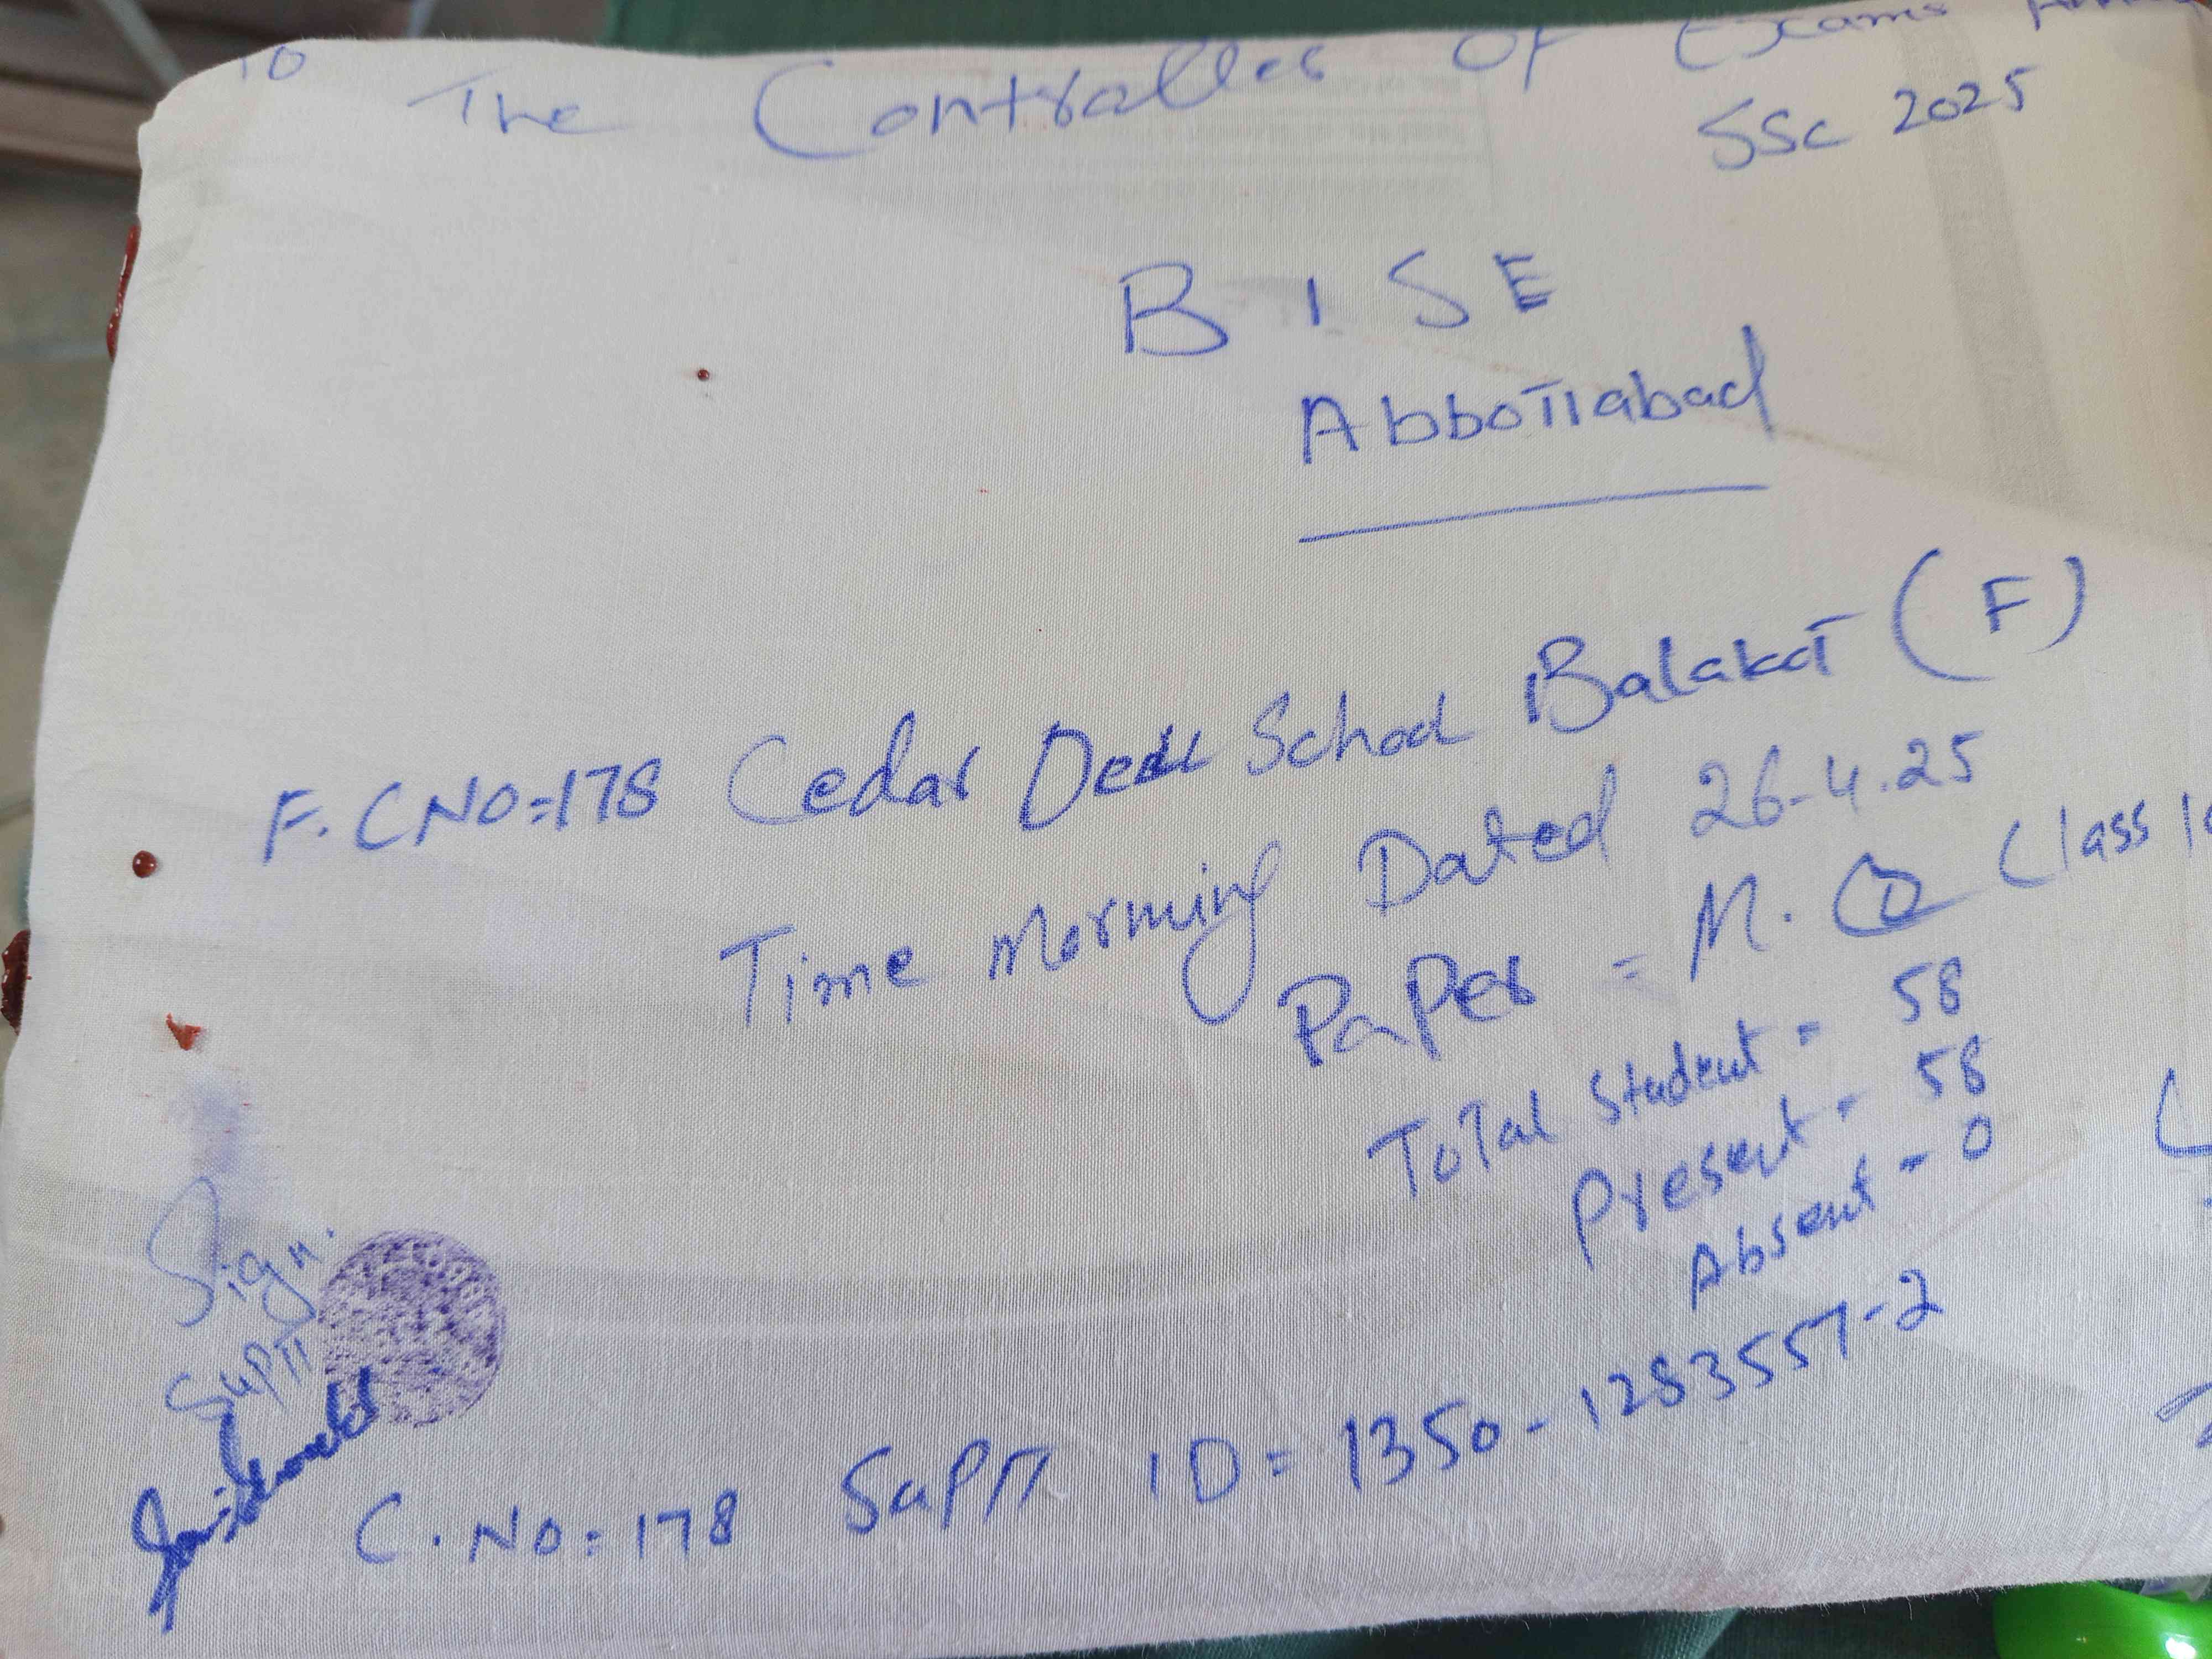 To
The Controller Of Exams
SSC 2025
B I S E
Abbottabad
F. C NO=178 Cedar School Balakot (F)
Time Morning Dated 26-4.25
Paper = M. Q Class
Total Student = 58
Present = 58
Absent = 0
Sign.
Suptt
C. NO = 178 Suptt ID = 1350-1283557-2